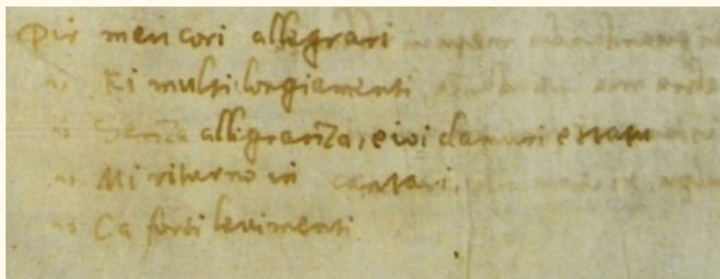 Pir meu cori alligrari
Ki multi longiamenti
Senza alligranza, e ioi d'amuri e statu
Mi ritorno in cantari,
Ca forsi levimenti